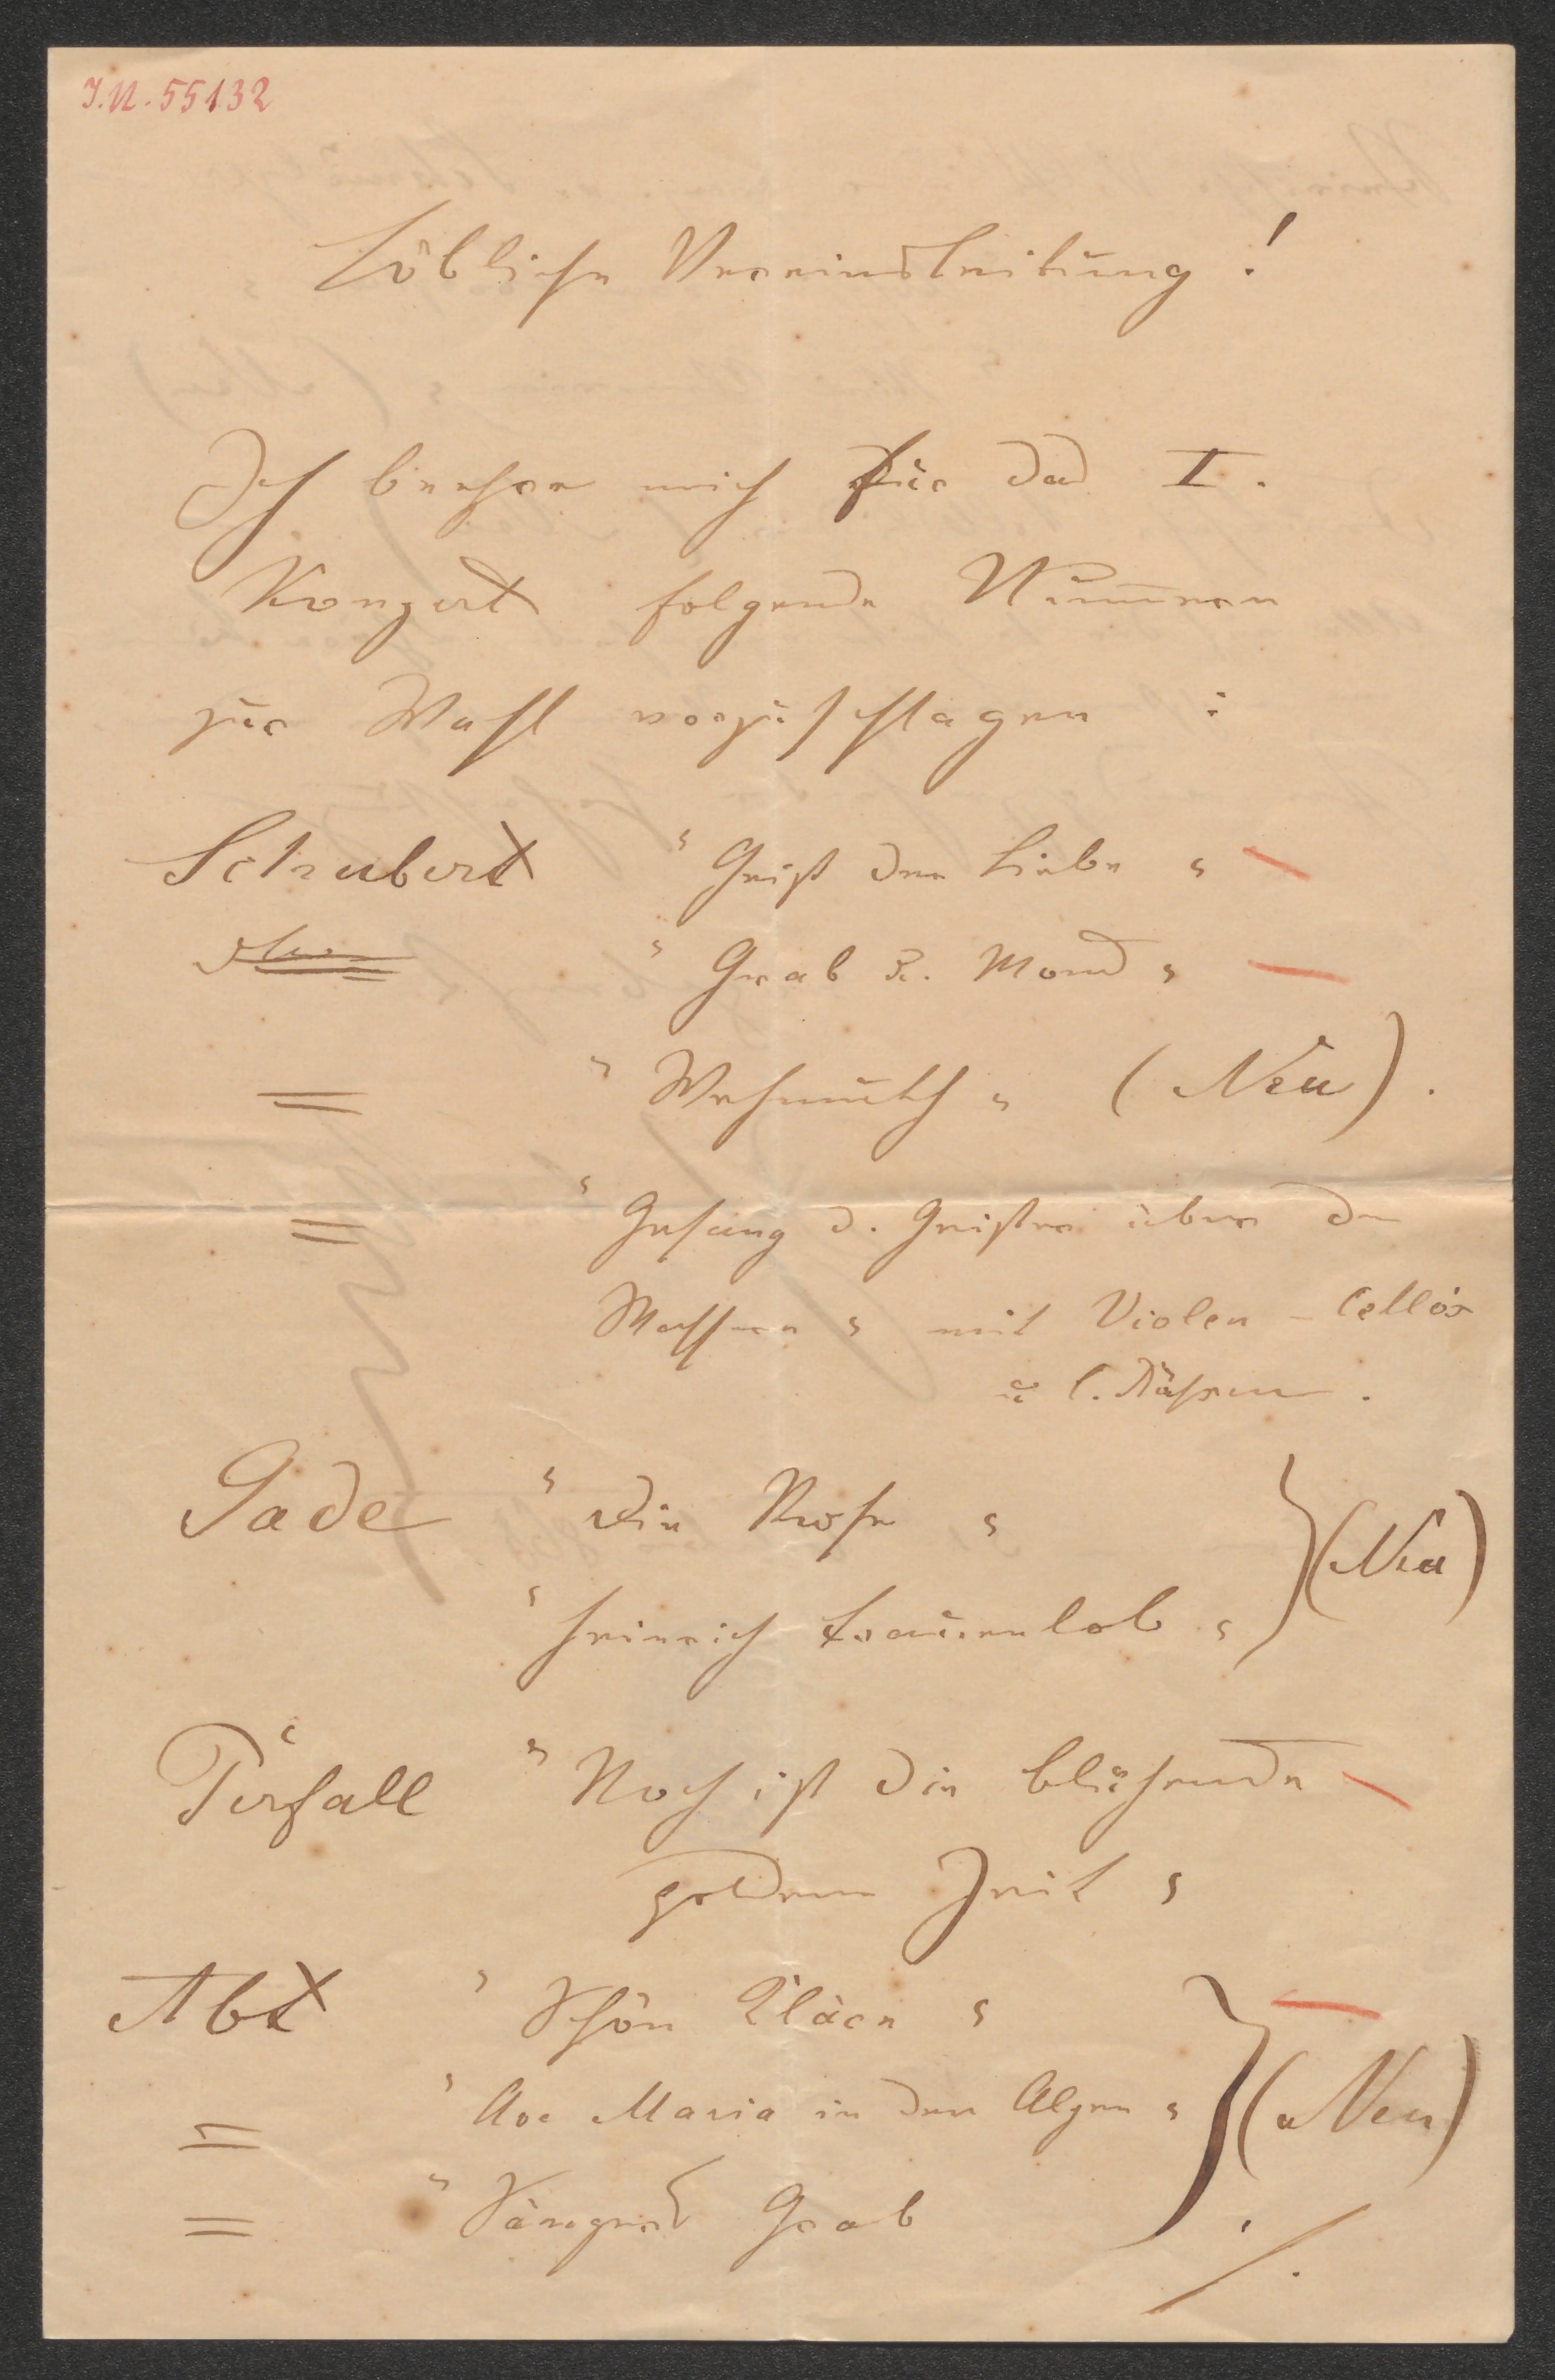 I.N. 55132
Löbliche Vereinsleitung!
Ich beehre mich für das I.
Konzert folgende Num̄ern
zur Wahl vorzuschlagen:
Schubert "Geist der Liebe"
"Grab u. Mond"
= "Wehmuth" (Neu).
= "Gesang d. Geister über den
Wassern" mit Violen - Cello's
u C. Bässen.
Gade "Die Rose"
"Heinrich Frauenlob" } (Neu)
Perfall "Noch ist die blühende
goldene Zeit"
Abt "Schön Klärn"
= "Ave Maria in den Alpen" } (Neu)
= "Sängers Grab
./.